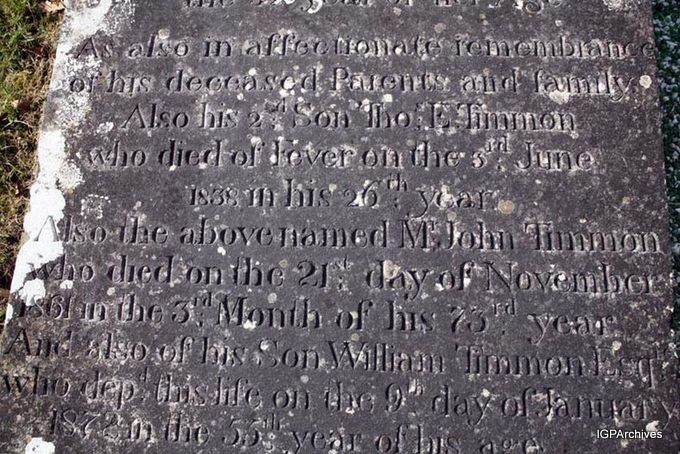 the year of her Age
As also in affectionate remembrance
of his deceased Parents and family.
Also his 2nd Son Thos. E. Timmon
who died of Fever on the 3rd June
1838 in his 26th year
Also the above named Mr. John Timmon
who died on the 21st. day of November
1861 in the 3rd Month of his 73rd year
And also of his Son William Timmon Esqr.
who depd. this life on the 9th day of January
1872 in the 55th year of his age
IGPArchives